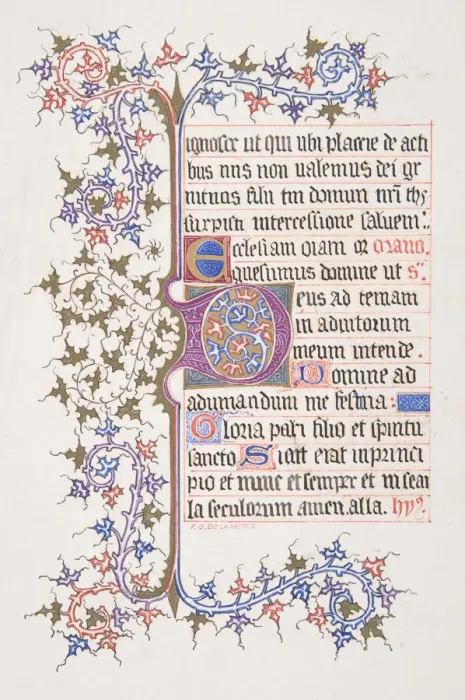 ignosce ut qui ubi placere de acti
bus nris non ualemus dei gr
nitricis filii tui domini nri ihs
xp̄i intercessione saluem:.
Ecclesiam oiam or̄ oiano.
quesumus domine ut s.
Deus ad temam
in aduitorum
meum intende.
Domine ad
adiumandum me festina:
Gloria patri filio et spiritu
sancto Sicut erat in princi
pio et nunc et semper et in secu
la seculorum amen. alla. hyo.
F. G. DELAMOTTE